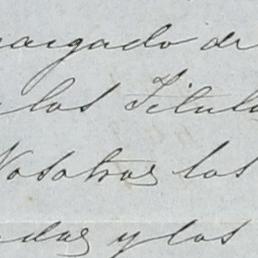 cargado de
los Titulo
Nosotros los
das y los